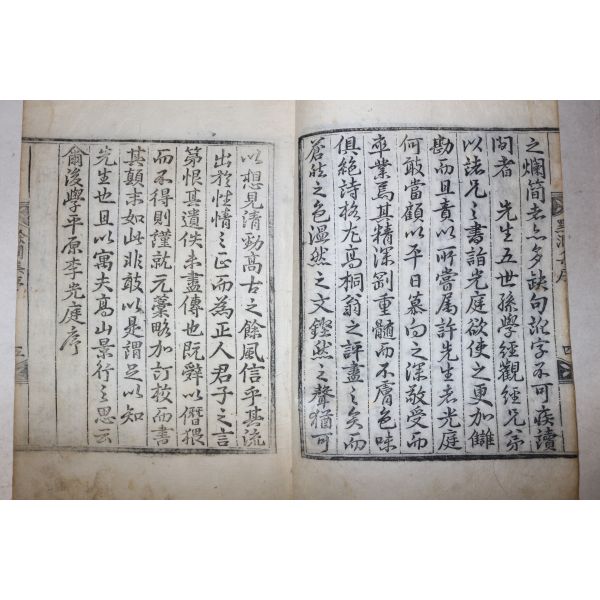 之爛簡者亦多缺句訛字不可疾讀
問者 先生五世孫學經觀經兄弟
以諸兄之書詣光庭欲使之更加讎
勘而且責以所嘗属許先生者光庭
何敢當顧以平日慕向之深敬受而
卒業焉其精深劌重髓而不膚色味
俱絶詩格尤高桐翁之評盡之矣而
蒼然之色溫然之文鏗然之聲猶可
以想見清勁高古之餘風信乎其流
出於性情之正而為正人君子之言
第恨其遺佚未盡傳也既辭以僭猥
而不得則謹就元藁略加訂校而書
其顛末如此非敢以是謂足以知
先生也且以寓夫高山景行之思云
爾後學平原李光庭序
四
五